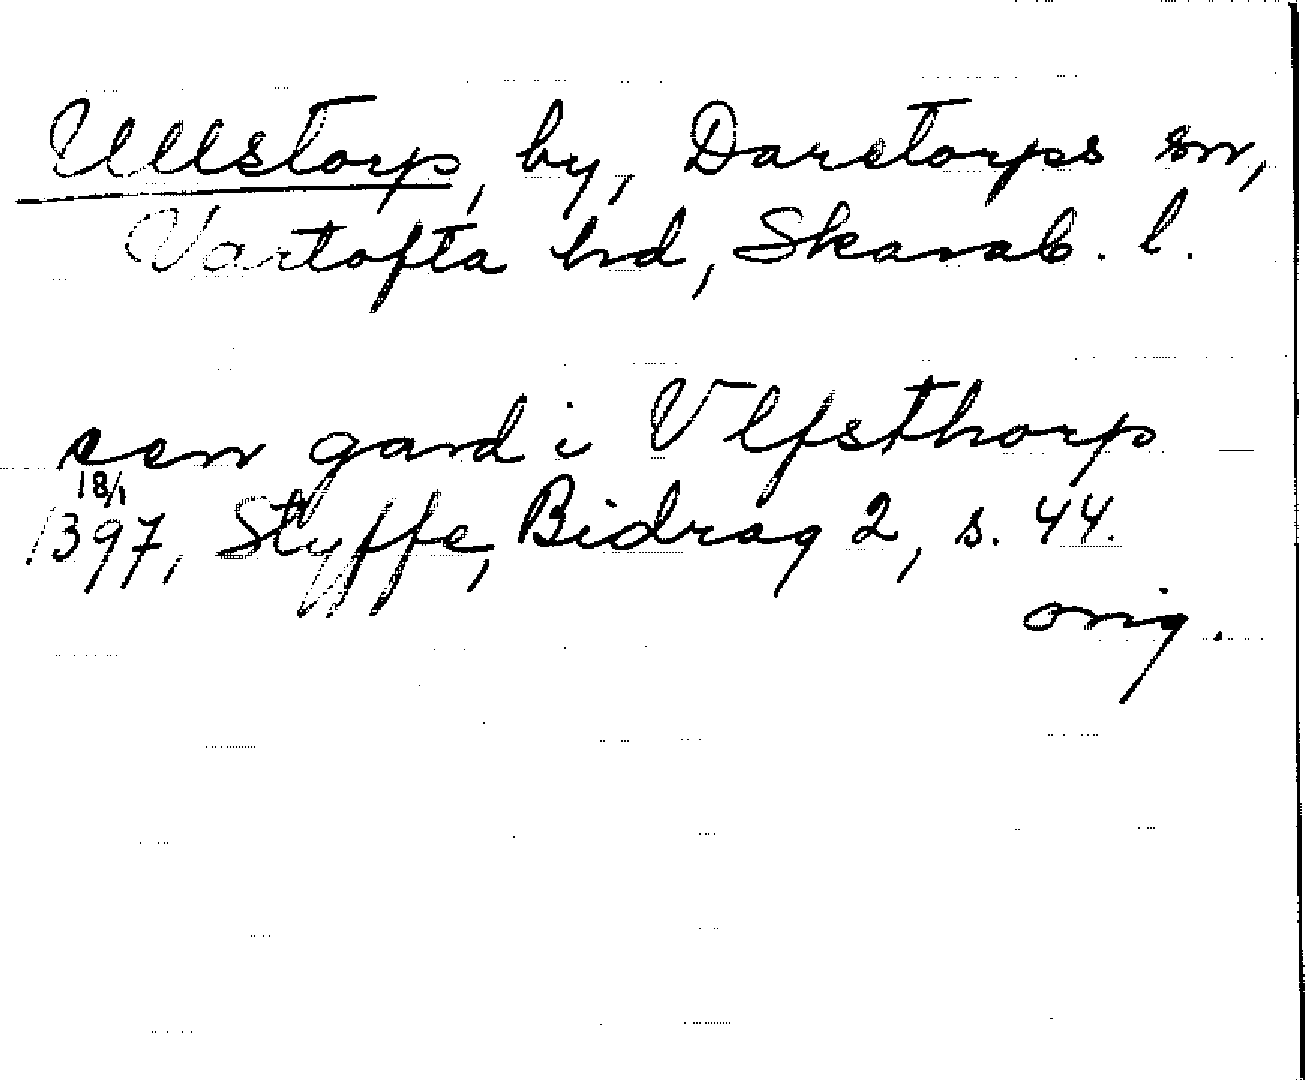 Ullstorp, by, Daretorps sn,
Vartofta hd, Skarab. l.
een gard i Vlfsthorp
18/1
1397, Styffe, Bidrag 2, s. 44.
orig.